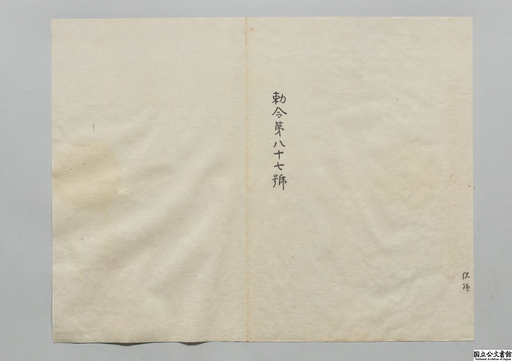 勅令第八十七號
国立公文書館
National Archives of Japan